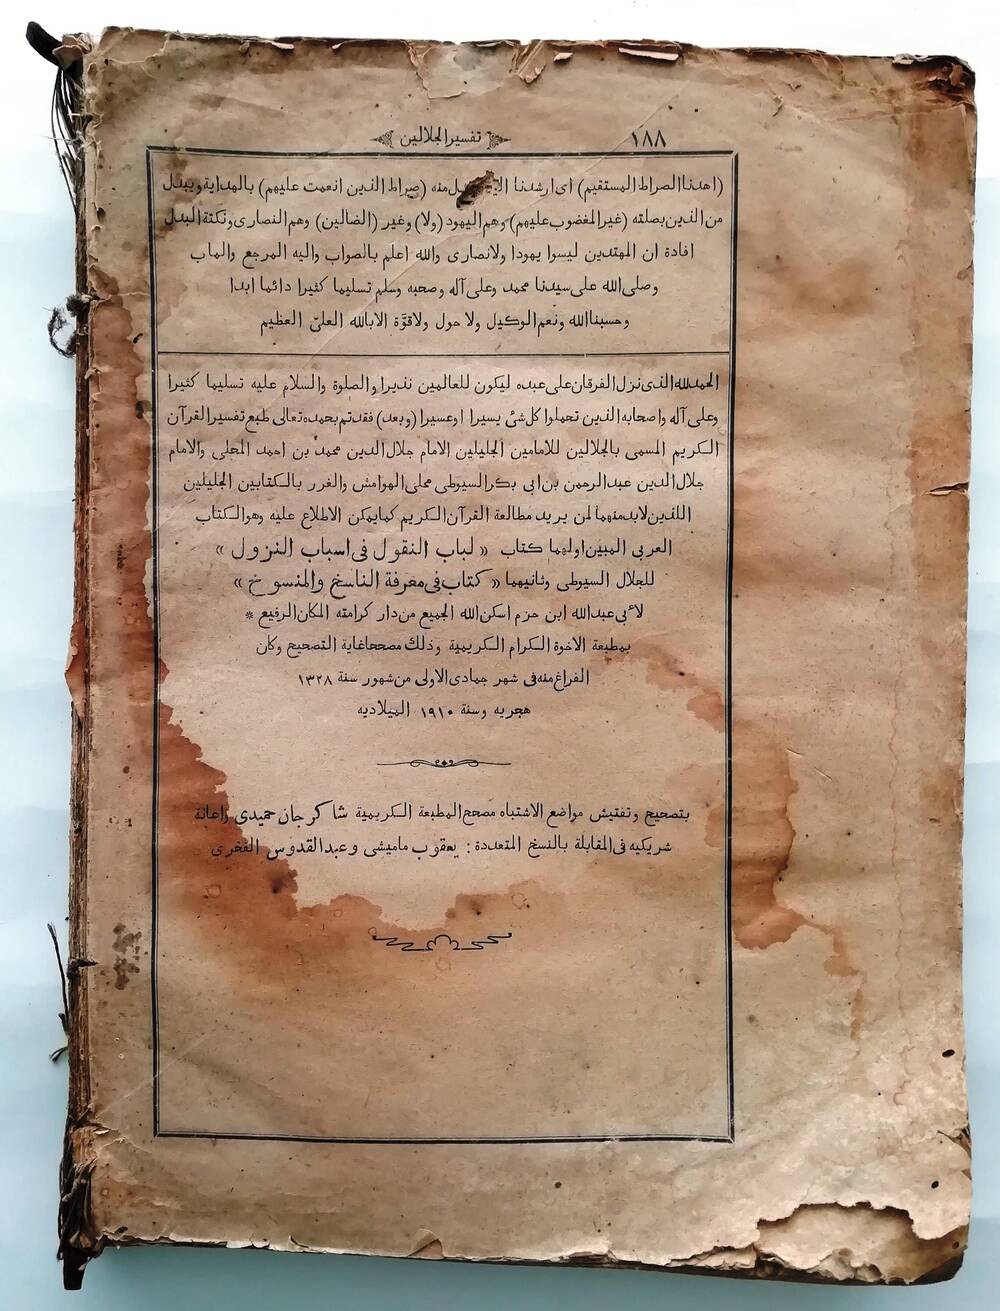 ١٨٨
تفسير الجلالين
(اهدنا الصراط المستقيم) اى ارشدنا منه (صراط الذين انعمت عليهم) بالهداية ويبدل
من الذين بصلته (غير المغضوب عليهم) وهم اليهود (ولا) وغير (الضالين) وهم النصارى ونكتة البدل
افادة ان المهتدين ليسوا يهودا ولا نصارى والله اعلم بالصواب واليه المرجع والماب
وصلى الله على سيدنا محمد وعلى آله وصحبه وسلم تسليما كثيرا دائما ابدا
وحسبنا الله ونعم الوكيل ولا حول ولا قوّة الا بالله العلىّ العظيم
الحمد لله الذى نزل الفرقان على عبده ليكون للعالمين نذيرا والصلوة والسلام عليه تسليما كثيرا
وعلى آله واصحابه الذين تحملوا كل شئ يسيرا او عسيرا (وبعد) فقد تم بحمده تعالى طبع تفسير القرآن
الكريم المسمى بالجلالين للامامين الجليلين الامام جلال الدين محمد بن احمد المحلى والامام
جلال الدين عبد الرحمن بن ابى بكر السيوطى محلى الهوامش والغرر بالكتابين الجليلين
اللذين لابد منهما لمن يريد مطالعة القرآن الكريم كما يمكن الاطلاع عليه وهو الكتاب
العربى المبين اولهما كتاب « لباب النقول فى اسباب النزول »
للجلال السيوطى وثانيهما « كتاب فى معرفة الناسخ والمنسوخ »
لابى عبد الله ابن حزم اسكن الله الجميع من دار كرامته المكان الرفيع *
بمطبعة الاخوة الكرام الكريمية وذلك مصححا غاية التصحيح وكان
الفراغ منه فى شهر جمادى الاولى من شهور سنة ١٣٢٨
هجريه وسنة ١٩١٠ الميلاديه
بتصحيح وتفتيش مواضع الاشتباه مصحح المطبعة الكريمية شاكرجان حميدى واعانة
شريكيه فى المقابلة بالنسخ المتعددة : يعقوب ماميشى وعبد القدوس الفخرى